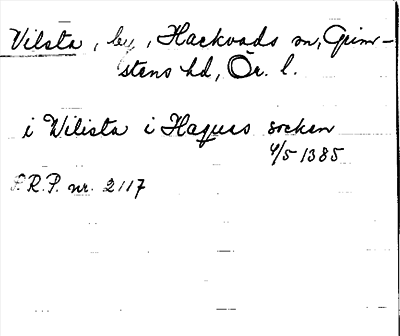 Vilsta, by, Hackvads sn, Grim-
stens hd, Ör. l.
i Wilista i Haquis socken
4/5 1385
P.R.P. nr. 2117